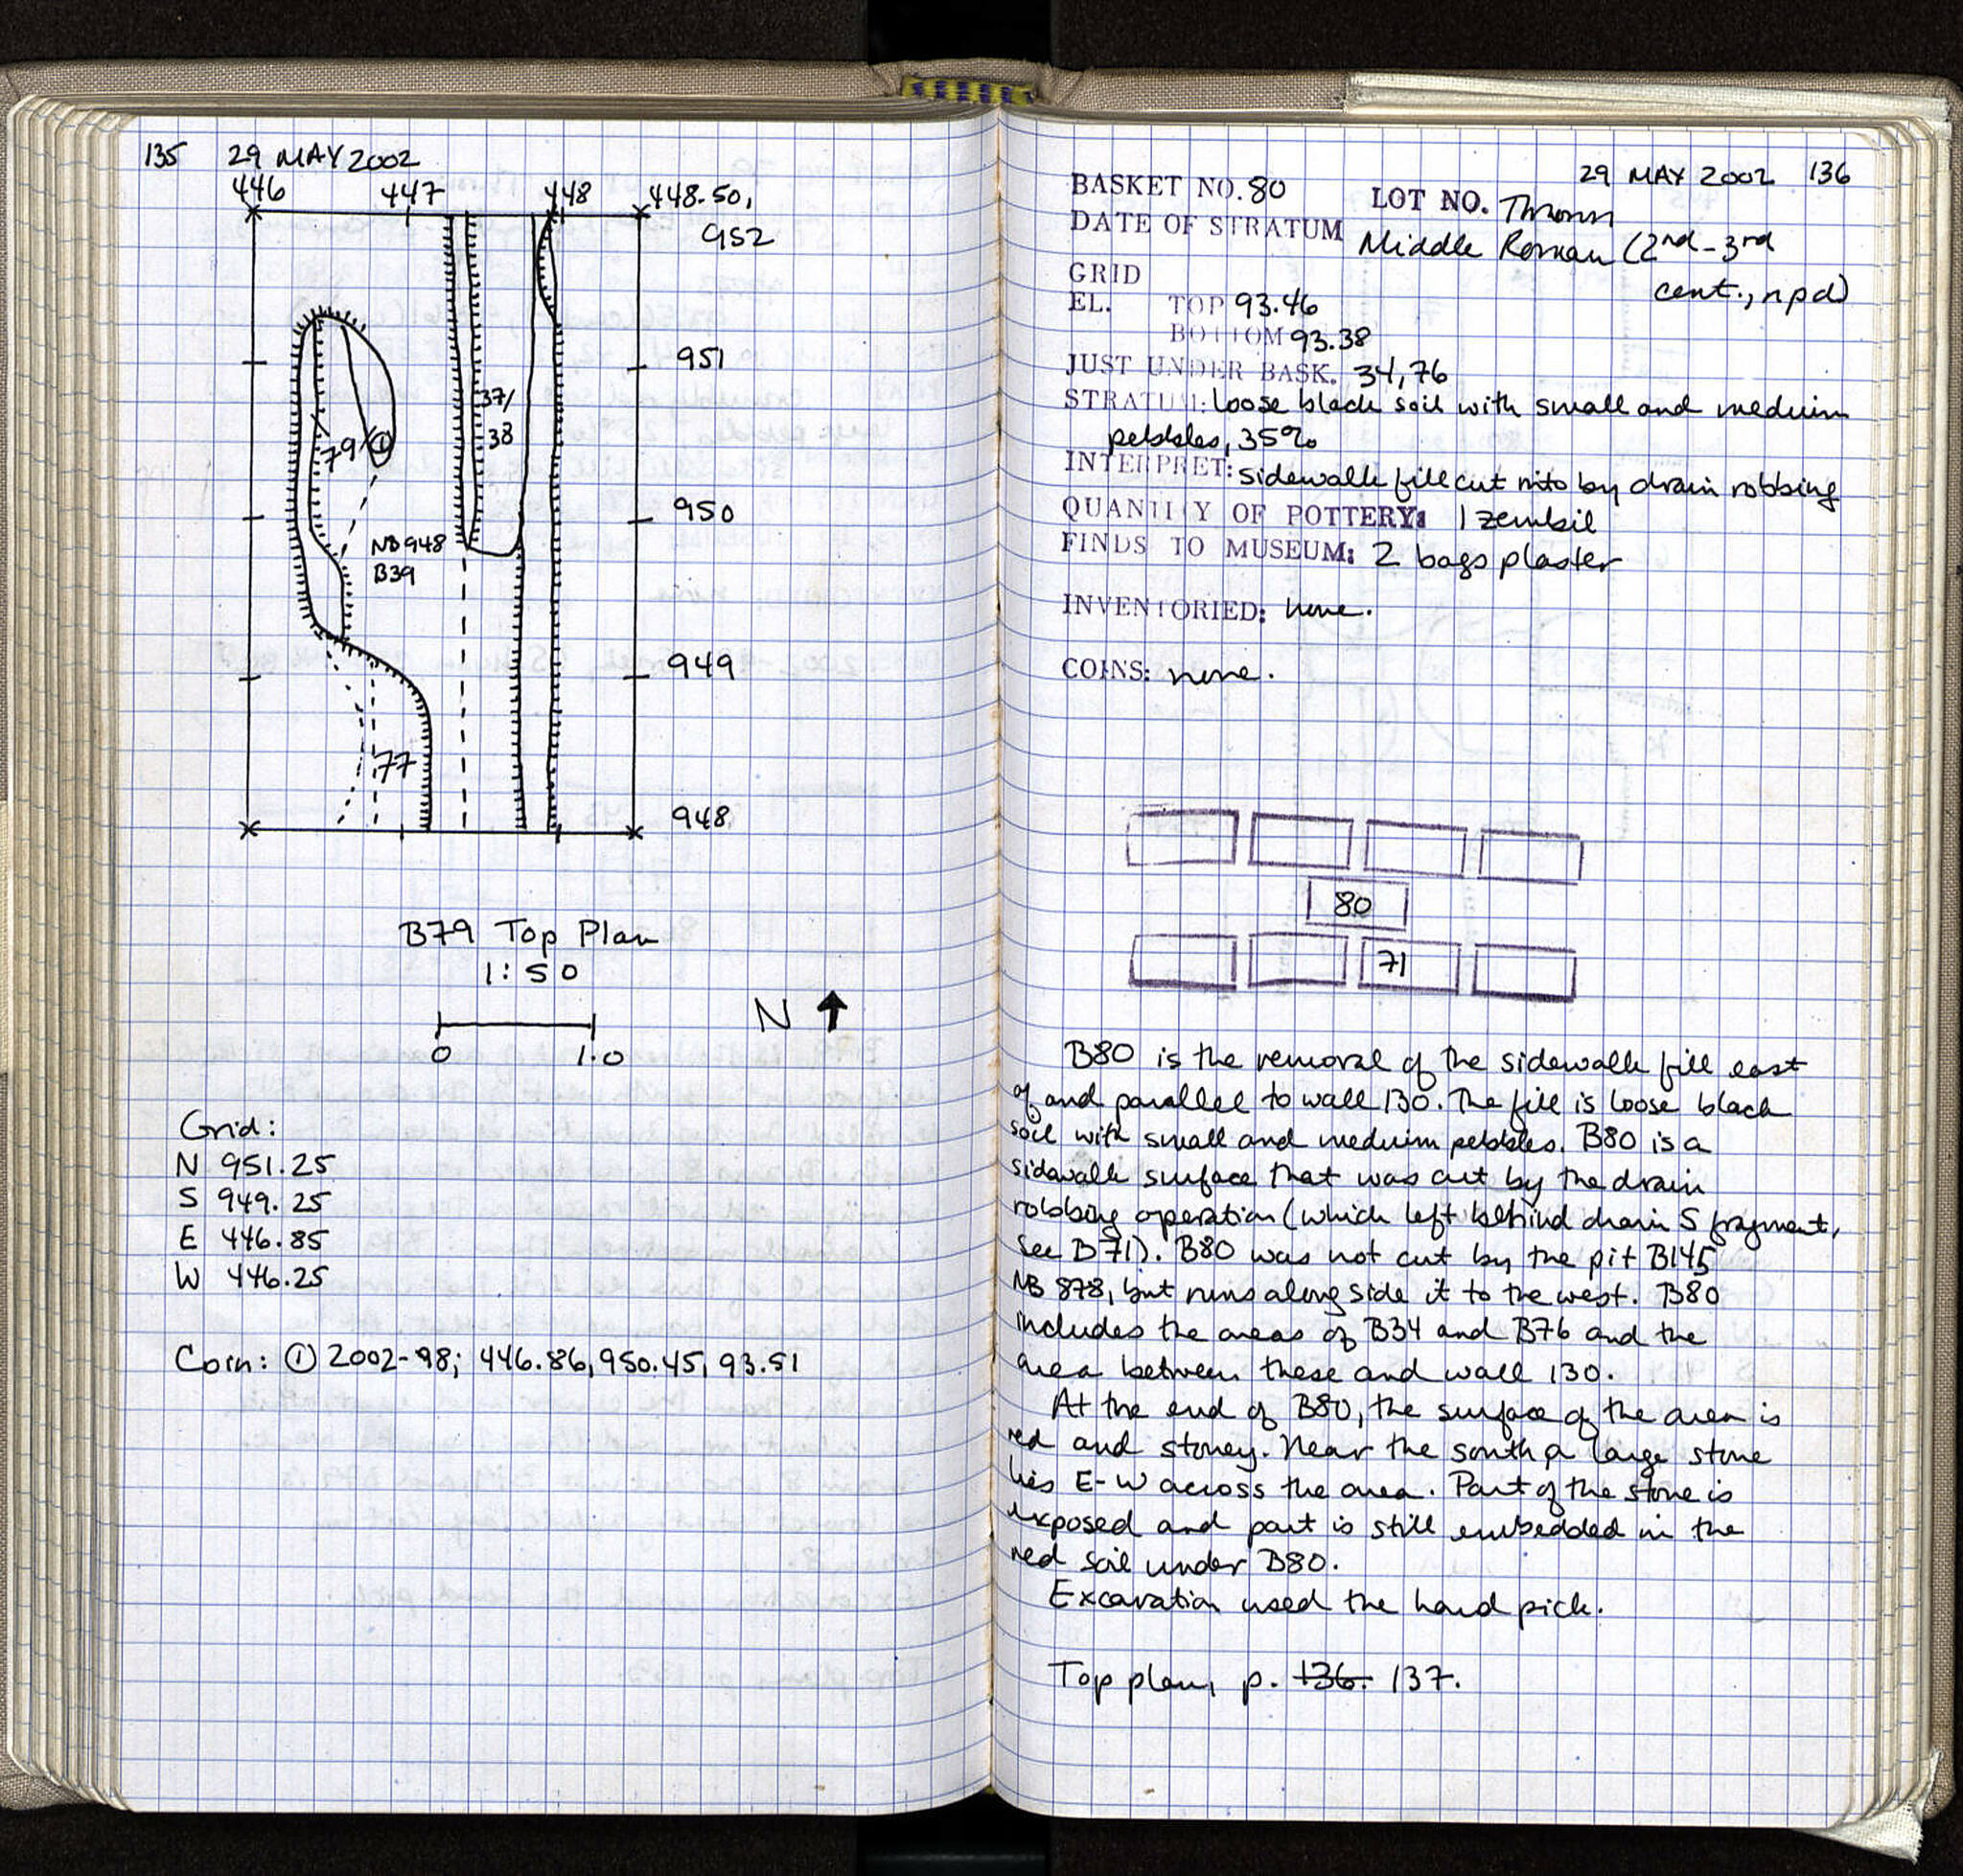 135 29 MAY 2002
446 447 448 448.50,
952
951
37/
38
79
①
950
NB 948
B39
949
77
948
B79 Top Plan
1:50
N
0 1.0
Grid:
N 951.25
S 949.25
E 446.85
W 446.25
Coin: ① 2002-98; 446.86, 950.45, 93.51
29 MAY 2002 136
BASKET NO. 80 LOT NO. Thrown
DATE OF STRATUM Middle Roman (2nd-3rd
cent., npd)
GRID
EL. TOP 93.46
BOTTOM 93.38
JUST UNDER BASK. 34, 76
STRATUM: loose black soil with small and medium
pebbles, 35%
INTERPRET: sidewalk fill cut into by drain robbing
QUANTITY OF POTTERY: 1 zembil
FINDS TO MUSEUM: 2 bags plaster
INVENTORIED: none.
COINS: none.
80
71
B80 is the removal of the sidewalk fill east
of and parallel to wall 130. The fill is loose black
soil with small and medium pebbles. B80 is a
sidewalk surface that was cut by the drain
robbing operation (which left behind drain 5 fragment,
see B71). B80 was not cut by the pit B145
NB 878, but runs along side it to the west. B80
includes the areas of B34 and B76 and the
area between these and wall 130.
At the end of B80, the surface of the area is
red and stoney. Near the south a large stone
lies E-W across the area. Part of the stone is
exposed and part is still embedded in the
red soil under B80.
Excavation used the hand pick.
Top plan, p. 136. 137.